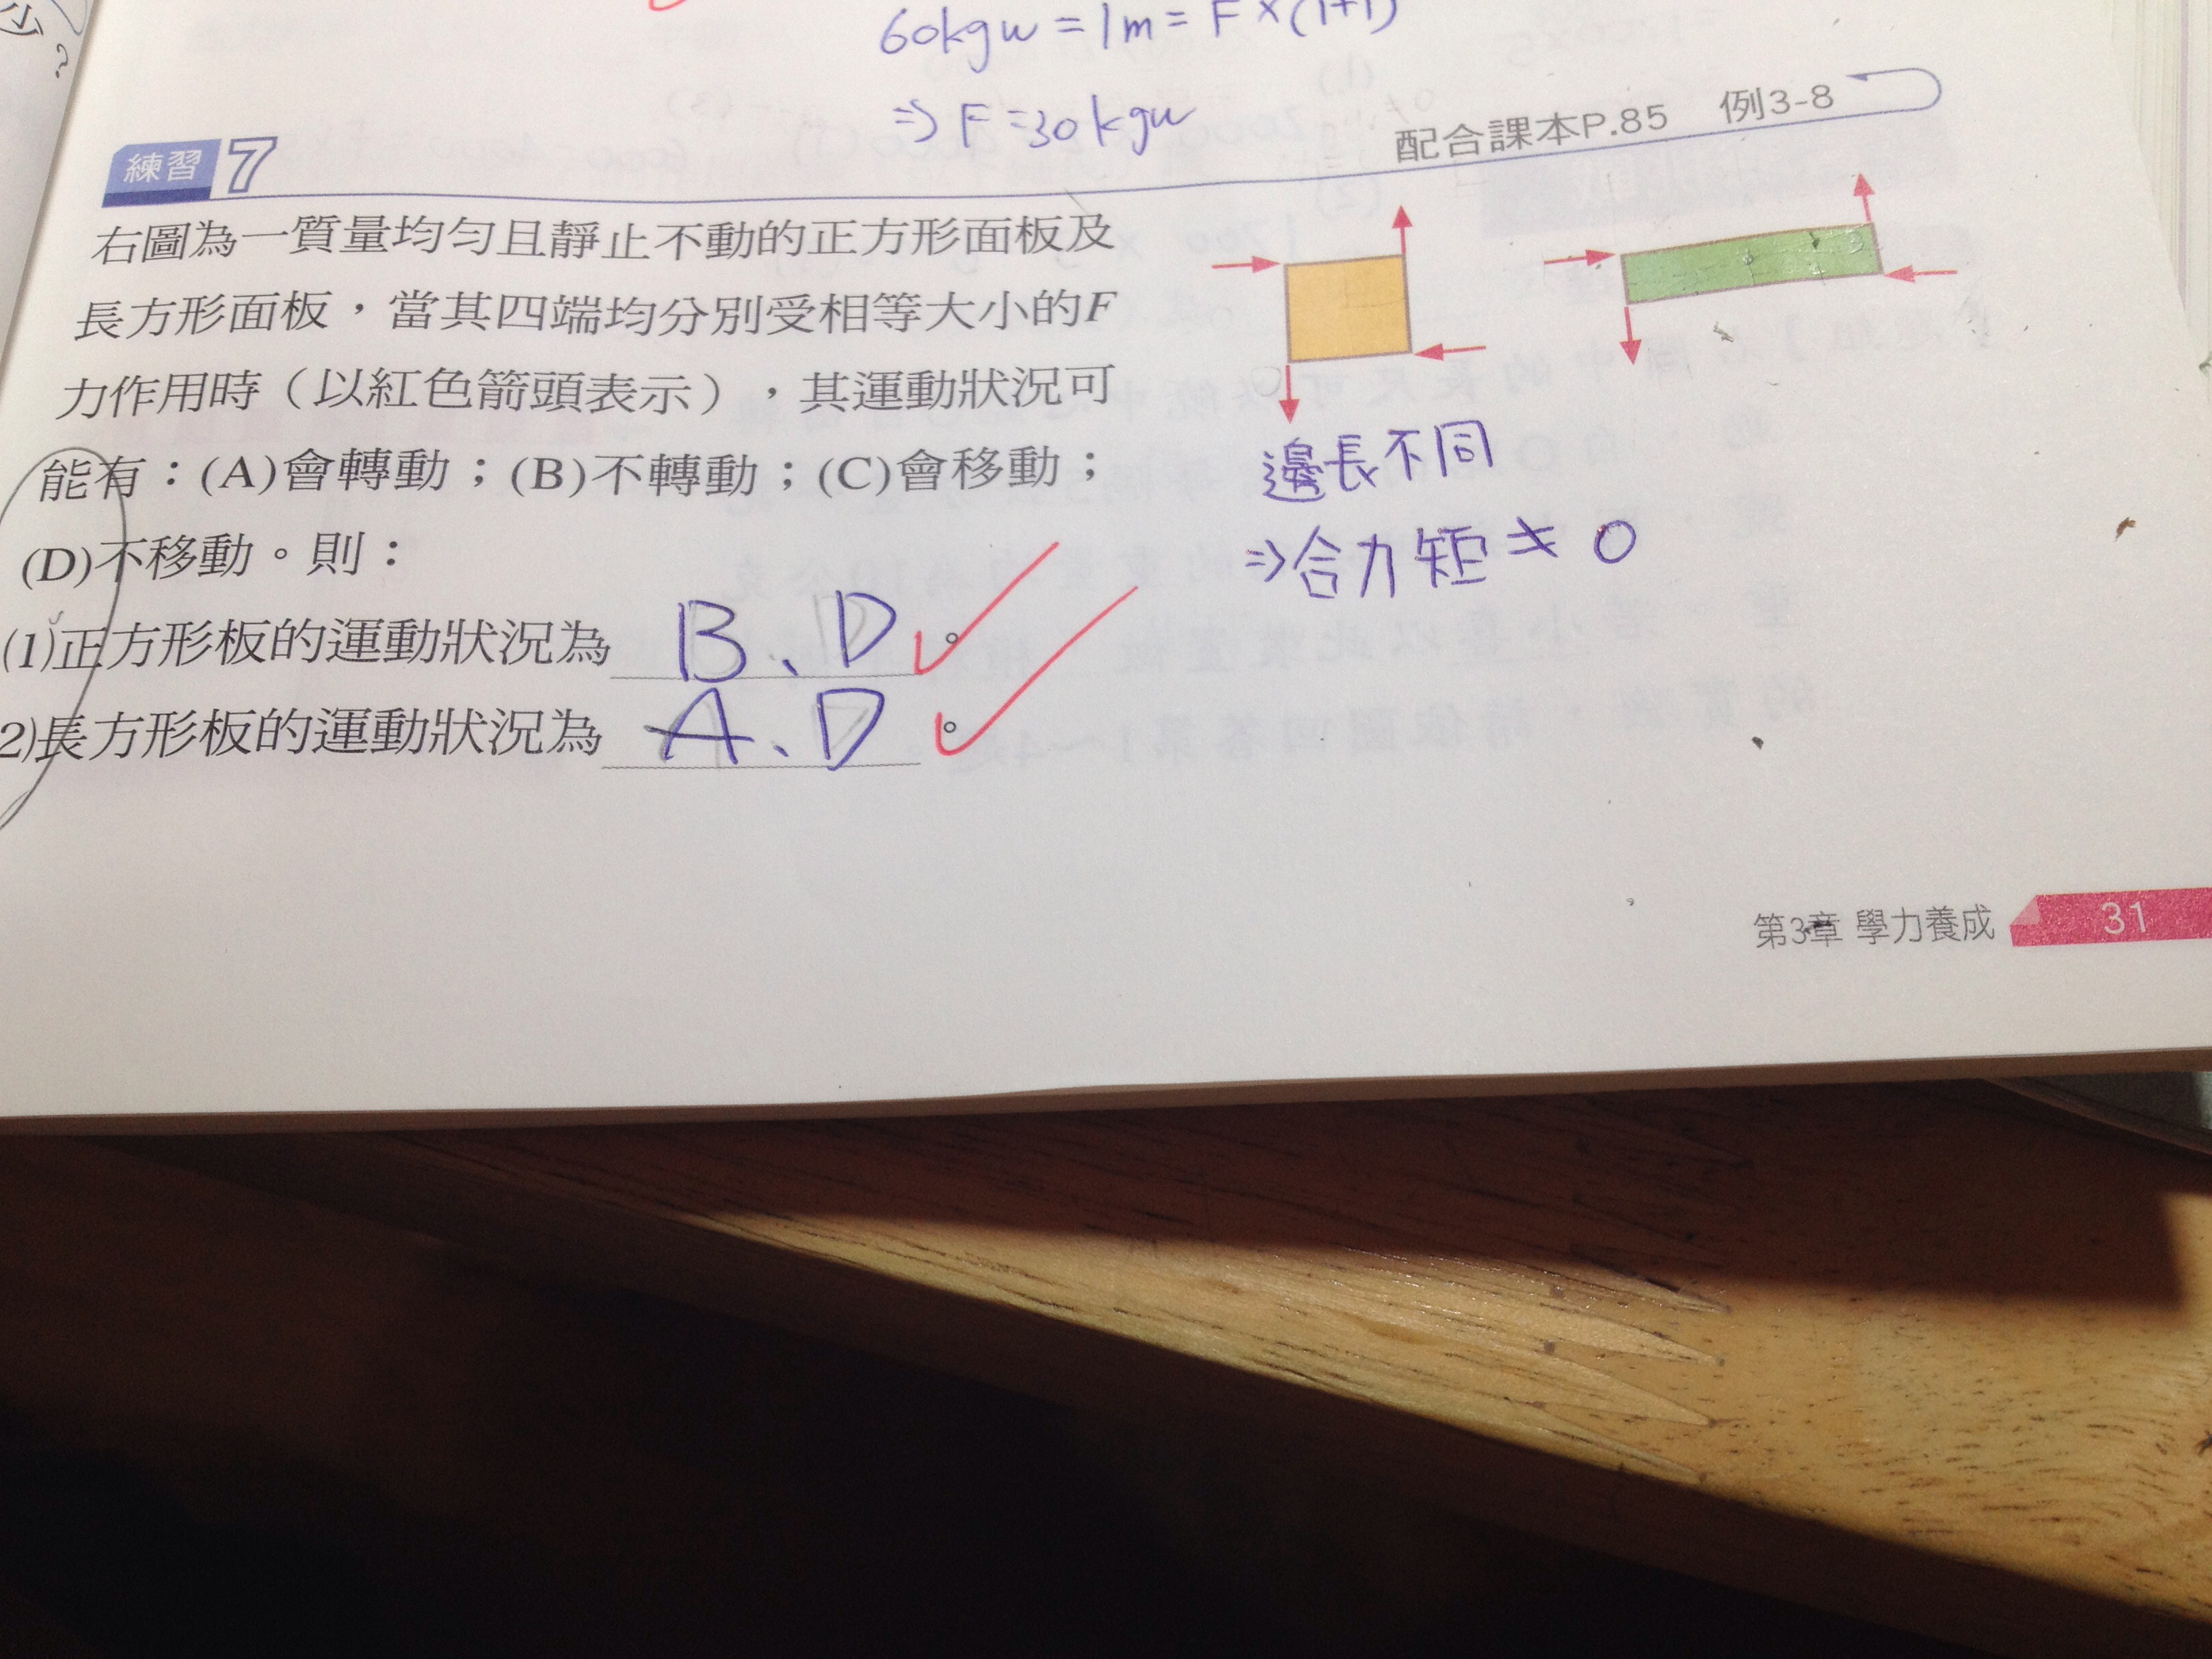 60kgw = 1m = F×(1+1)
⇒ F = 30kgw
練習7
配合課本P.85 例3-8
右圖為一質量均勻且靜止不動的正方形面板及
長方形面板,當其四端均分別受相等大小的F
力作用時(以紅色箭頭表示),其運動狀況可
能有:(A)會轉動;(B)不轉動;(C)會移動;
(D)不移動。則:
(1)正方形板的運動狀況為 B、D 。
2)長方形板的運動狀況為 A、D 。
邊長不同
⇒合力矩≠0
第3章 學力養成 31